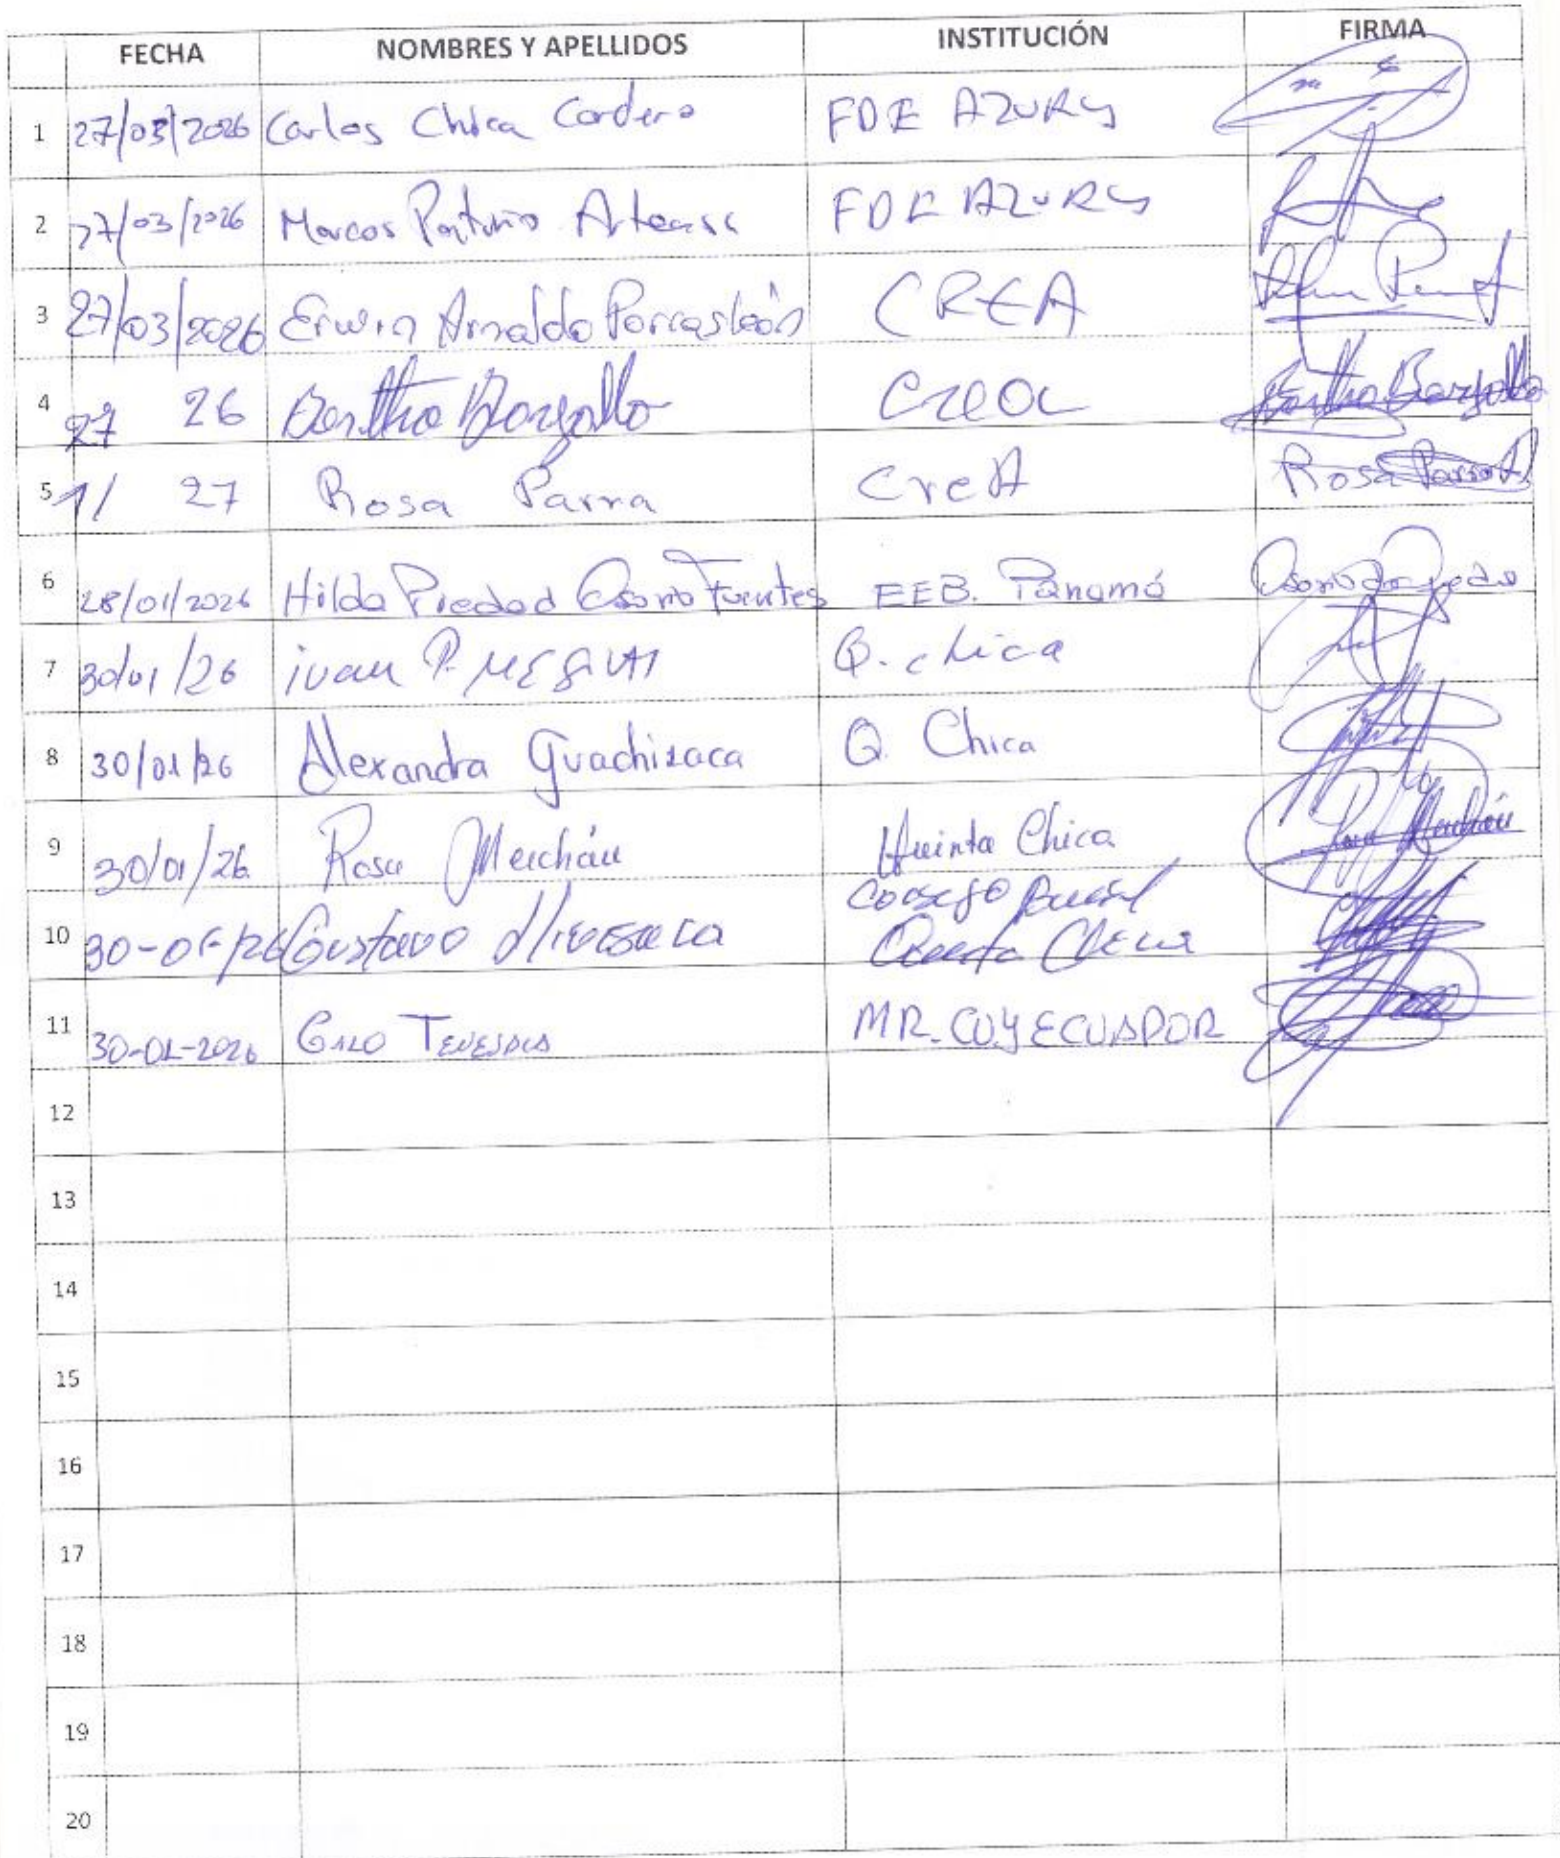 FECHA NOMBRES Y APELLIDOS INSTITUCIÓN FIRMA
1 27/03/2026 Carlos Chica Cordero FDE AZUAY
2 27/03/2026 Marcos Patricio Arteaga FDE AZUAY
3 27/03/2026 Erwin Arnaldo Porras León CREA
4 27 26 Bertha Bargallo Crea Bertha Bargallo
5 11 27 Rosa Parra CreA Rosa Parra
6 28/01/2026 Hilda Piedad Osorio Fuentes EEB. Panamá
7 30/01/26 ivan P. Q. chica
8 30/01/26 Alexandra Guachizaca Q. Chica
9 30/01/26 Rosa Merchán Quinta Chica Rosa Merchán
10 30-01-/26 Gustavo Quinta Chica
11 30-01-2026 MR. CUY ECUADOR
12
13
14
15
16
17
18
19
20